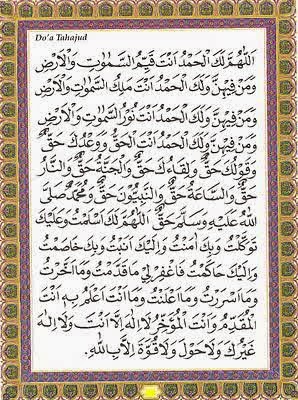 Do'a Tahajud
اَللّٰهُمَّ لَكَ الْحَمْدُ اَنْتَ قَيِّمُ السَّمٰوٰتِ وَالْاَرْضِ
وَمَنْ فِيْهِنَّ وَلَكَ الْحَمْدُ اَنْتَ مَلِكُ السَّمٰوٰتِ وَالْاَرْضِ
وَمَنْ فِيْهِنَّ وَلَكَ الْحَمْدُ اَنْتَ نُوْرُ السَّمٰوٰتِ وَالْاَرْضِ
وَمَنْ فِيْهِنَّ وَلَكَ الْحَمْدُ اَنْتَ الْحَقُّ وَوَعْدُكَ حَقٌّ
وَقَوْلُكَ حَقٌّ وَلِقَاءُكَ حَقٌّ وَالْجَنَّةُ حَقٌّ وَالنَّارُ
حَقٌّ وَالسَّاعَةُ حَقٌّ وَالنَّبِيُّوْنَ حَقٌّ وَمُحَمَّدٌ صَلَّى
اللهُ عَلَيْهِ وَسَلَّمَ حَقٌّ اَللّٰهُمَّ لَكَ اَسْلَمْتُ وَعَلَيْكَ
تَوَكَّلْتُ وَبِكَ اٰمَنْتُ وَاِلَيْكَ اَنَبْتُ وَبِكَ خَاصَمْتُ
وَاِلَيْكَ حَاكَمْتُ فَاغْفِرْلِيْ مَا قَدَّمْتُ وَمَا اَخَّرْتُ
وَمَا اَسْرَرْتُ وَمَا اَعْلَنْتُ وَمَا اَنْتَ اَعْلَمُ بِهِ اَنْتَ
الْمُقَدِّمُ وَاَنْتَ الْمُؤَخِّرُ لَا اِلٰهَ اِلَّا اَنْتَ وَلَا اِلٰهَ
غَيْرُكَ وَلَا حَوْلَ وَلَا قُوَّةَ اِلَّا بِاللهِ.